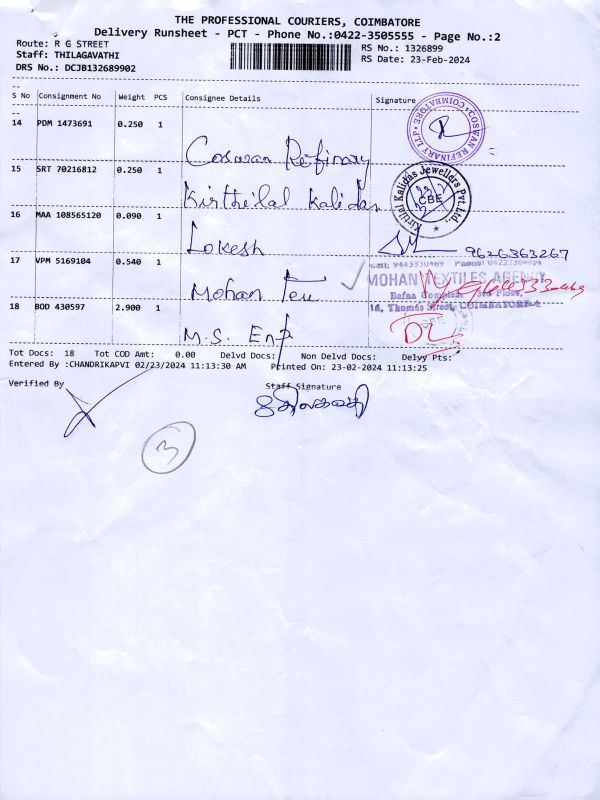 THE PROFESSIONAL COURIERS, COIMBATORE
Delivery Runsheet - PCT - Phone No.:0422-3505555 - Page No.:2
Route: R G STREET
RS No.: 1326899
Staff: THILAGAVATHI
RS Date: 23-Feb-2024
DRS No.: DCJB132689902
S No Consignment No Weight PCS Consignee Details Signature
14 PDM 1473691 0.250 1
COIMBATORE COSWAN REFINARY LLP.
Coswan Refinary
15 SRT 70216812 0.250 1
Kirtilal Kalidas Jewellers Pvt.Ltd.,
CBE
Kirthilal Kalidas
16 MAA 108565120 0.090 1
Lokesh
9626363267
17 VPM 5169104 0.540 1
MOHAN TEXTILES AGENCY
Mohan Tex
16, Thomas Street, COIMBATORE-1
18 BOD 430597 2.900 1
DL
M.S. Ent
Tot Docs: 18 Tot COD Amt: 0.00 Delvd Docs: Non Delvd Docs: Delvy Pts:
Entered By :CHANDRIKAPVI 02/23/2024 11:13:30 AM Printed On: 23-02-2024 11:13:25
Verified By Staff Signature
3